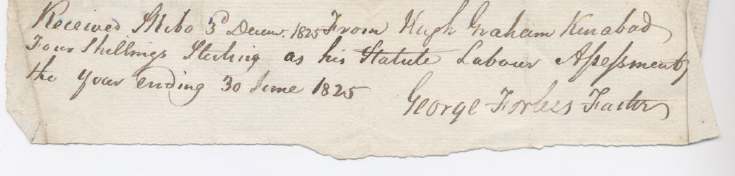 Received Skibo 3d Decemr. 1825 From Hugh Graham Kinabad
Four Shillings Sterling as his Statute Labour Assessment
the year ending 30 June 1825
George Forbes Factor